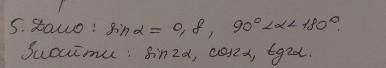 5. Дано: sin α = 0,8, 90° < α < 180°.
Знайти: sin 2α, cos 2α, tg 2α.